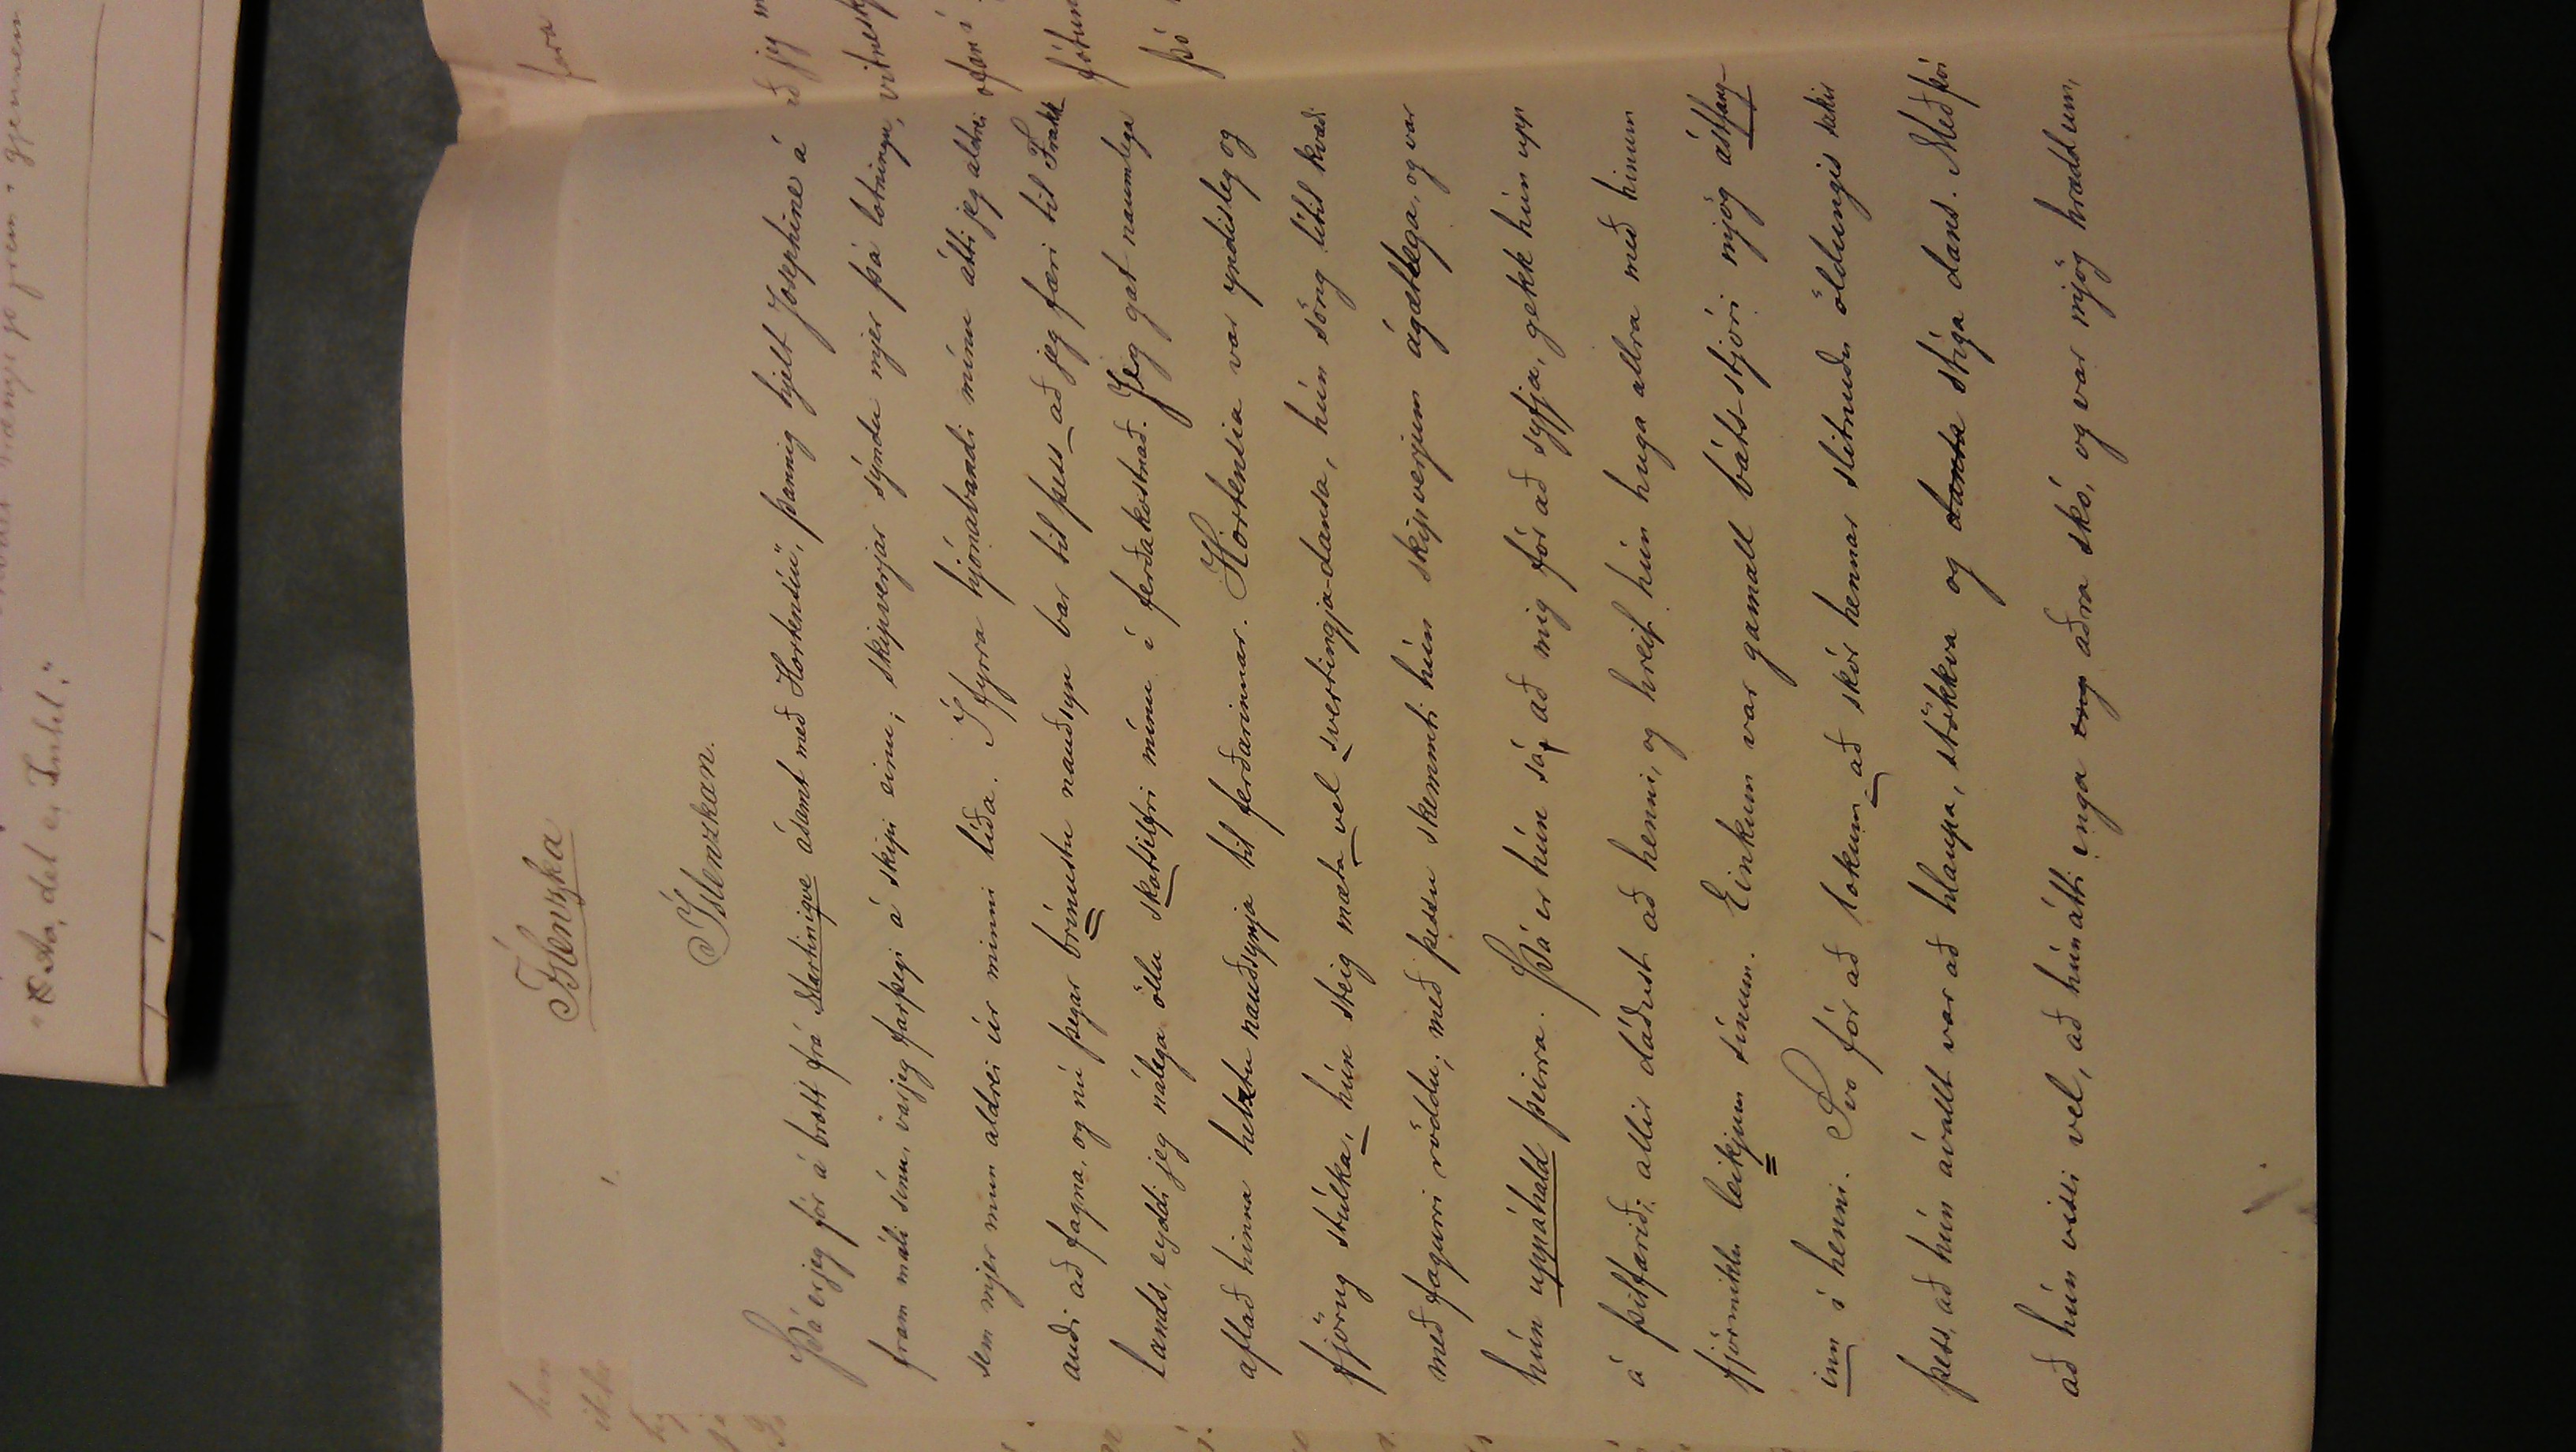 Íslenzka
Íslenzkan.
Þá er jeg fór á brott frá Martinique ásamt með Hortentíu, þannig hjelt Josephine á
fram máli sínu, var jeg farþegi á skipi einu; skipverjar sýndu mjer þá lotningu,
sem mjer mun aldrei úr minni líða. Í fyrra hjónabandi mínu átti jeg aldrei
auði að fagna, og nú þegar brýnustu nauðsyn bar til þess að jeg færi til Frakk
lands, eyddi jeg nálega öllu skotsilfri mínu í ferðakostnað. Jeg gat naumlega
aflað hinna helztu nauðsynja til ferðarinnar. Hortensia var yndisleg og
fjörug stúlka, hún steig mæta vel svertingja-dansa, hún söng lítil kvæði
með fagurri röddu; með þessu skemmti hún skipverjum ágætlega, og var
hún uppáhald þeirra. Þá er hún sá, að mig fór að syfja, gekk hún upp
á þilfarið; allir dáðust að henni, og hreif hún huga allra með hinum
fjörmiklu leikjum sínum. Einkum var gamall báts-stjóri mjög ástfang-
inn í henni. Svo fór að lokum að skór hennar slitnuðu öldungis sakir
þess, að hún ávallt var að hlaupa, stökkva og dansa stíga dans. Með því
að hún vissi vel, að hún átti enga eng aðra skó, og var mjög hrædd um,
"O Aa, det er Intet."
fara